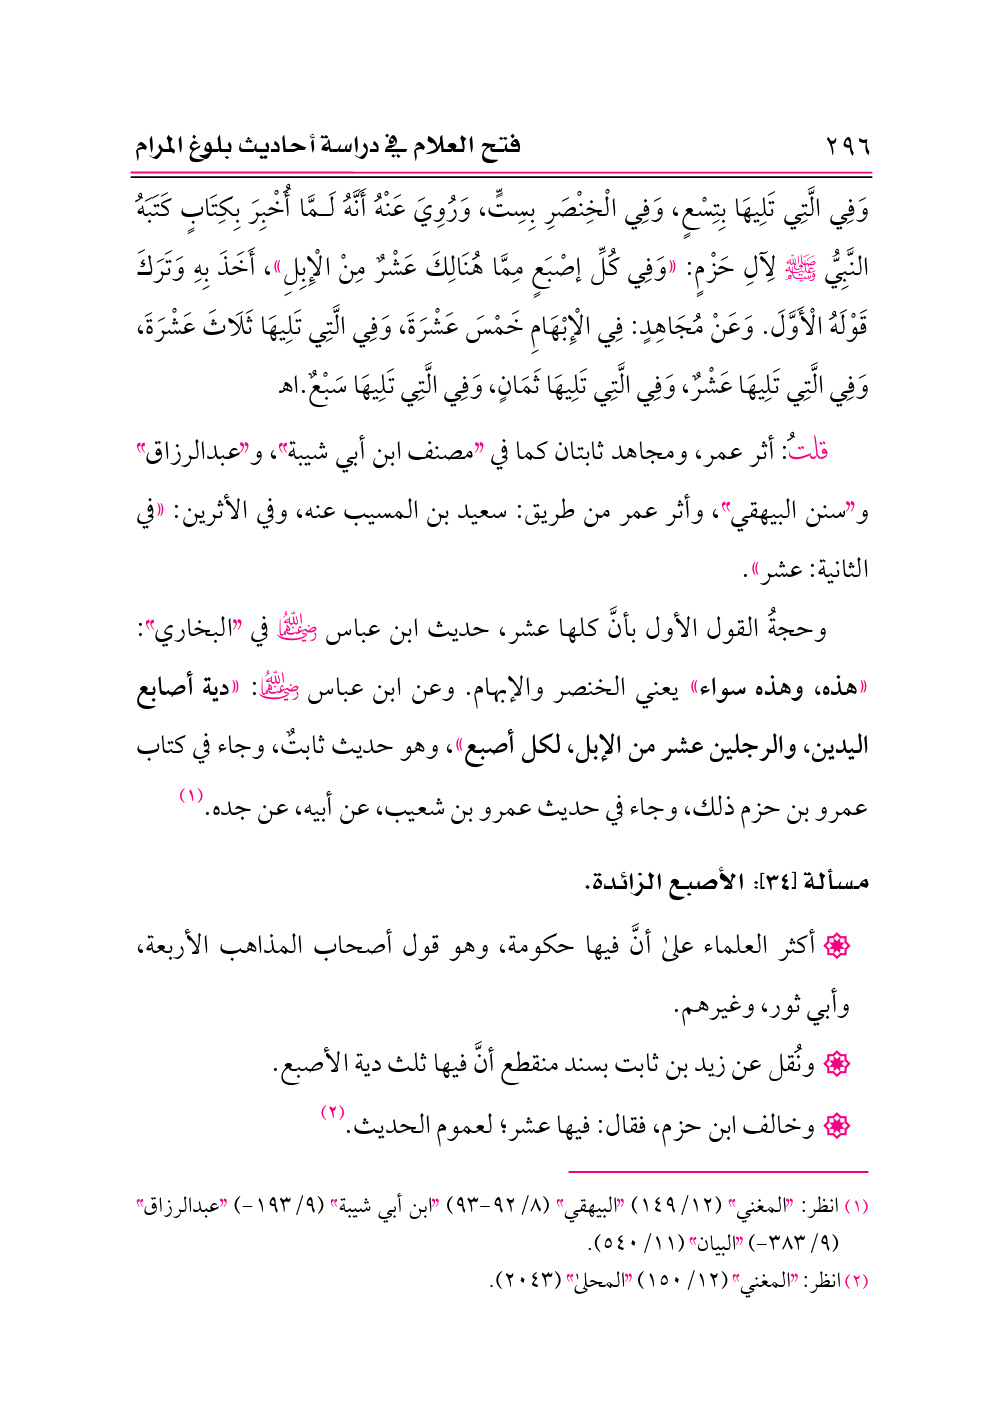 ٢٩٦ فتح العلام في دراسة أحاديث بلوغ المرام
وَفِي الَّتِي تَلِيهَا بِتِسْعٍ، وَفِي الْخِنْصَرِ بِسِتٍّ، وَرُوِيَ عَنْهُ أَنَّهُ لَـمَّا أُخْبِرَ بِكِتَابٍ كَتَبَهُ
النَّبِيُّ ﷺ لِآلِ حَزْمٍ: «وَفِي كُلِّ إصْبَعٍ مِمَّا هُنَالِكَ عَشْرٌ مِنْ الْإِبِلِ»، أَخَذَ بِهِ وَتَرَكَ
قَوْلَهُ الْأَوَّلَ. وَعَنْ مُجَاهِدٍ: فِي الْإِبْهَامِ خَمْسَ عَشْرَةَ، وَفِي الَّتِي تَلِيهَا ثَلَاثَ عَشْرَةَ،
وَفِي الَّتِي تَلِيهَا عَشْرٌ، وَفِي الَّتِي تَلِيهَا ثَمَانٍ، وَفِي الَّتِي تَلِيهَا سَبْعٌ.اهـ
قلتُ: أثر عمر، ومجاهد ثابتان كما في "مصنف ابن أبي شيبة"، و"عبدالرزاق"
و"سنن البيهقي"، وأثر عمر من طريق: سعيد بن المسيب عنه، وفي الأثرين: «في
الثانية: عشر».
وحجةُ القول الأول بأنَّ كلها عشر، حديث ابن عباس رضي الله عنهما في "البخاري":
«هذه، وهذه سواء» يعني الخنصر والإبهام. وعن ابن عباس رضي الله عنهما: «دية أصابع
اليدين، والرجلين عشر من الإبل، لكل أصبع»، وهو حديث ثابتٌ، وجاء في كتاب
عمرو بن حزم ذلك، وجاء في حديث عمرو بن شعيب، عن أبيه، عن جده.(١)
مسألة [٣٤]: الأصبع الزائدة.
أكثر العلماء علىٰ أنَّ فيها حكومة، وهو قول أصحاب المذاهب الأربعة،
وأبي ثور، وغيرهم.
ونُقل عن زيد بن ثابت بسند منقطع أنَّ فيها ثلث دية الأصبع.
وخالف ابن حزم، فقال: فيها عشر؛ لعموم الحديث.(٢)
(١) انظر: "المغني" (١٢/ ١٤٩) "البيهقي" (٨/ ٩٢-٩٣) "ابن أبي شيبة" (٩/ ١٩٣-) "عبدالرزاق"
(٩/ ٣٨٣-) "البيان" (١١/ ٥٤٠).
(٢) انظر: "المغني" (١٢/ ١٥٠) "المحلىٰ" (٢٠٤٣).